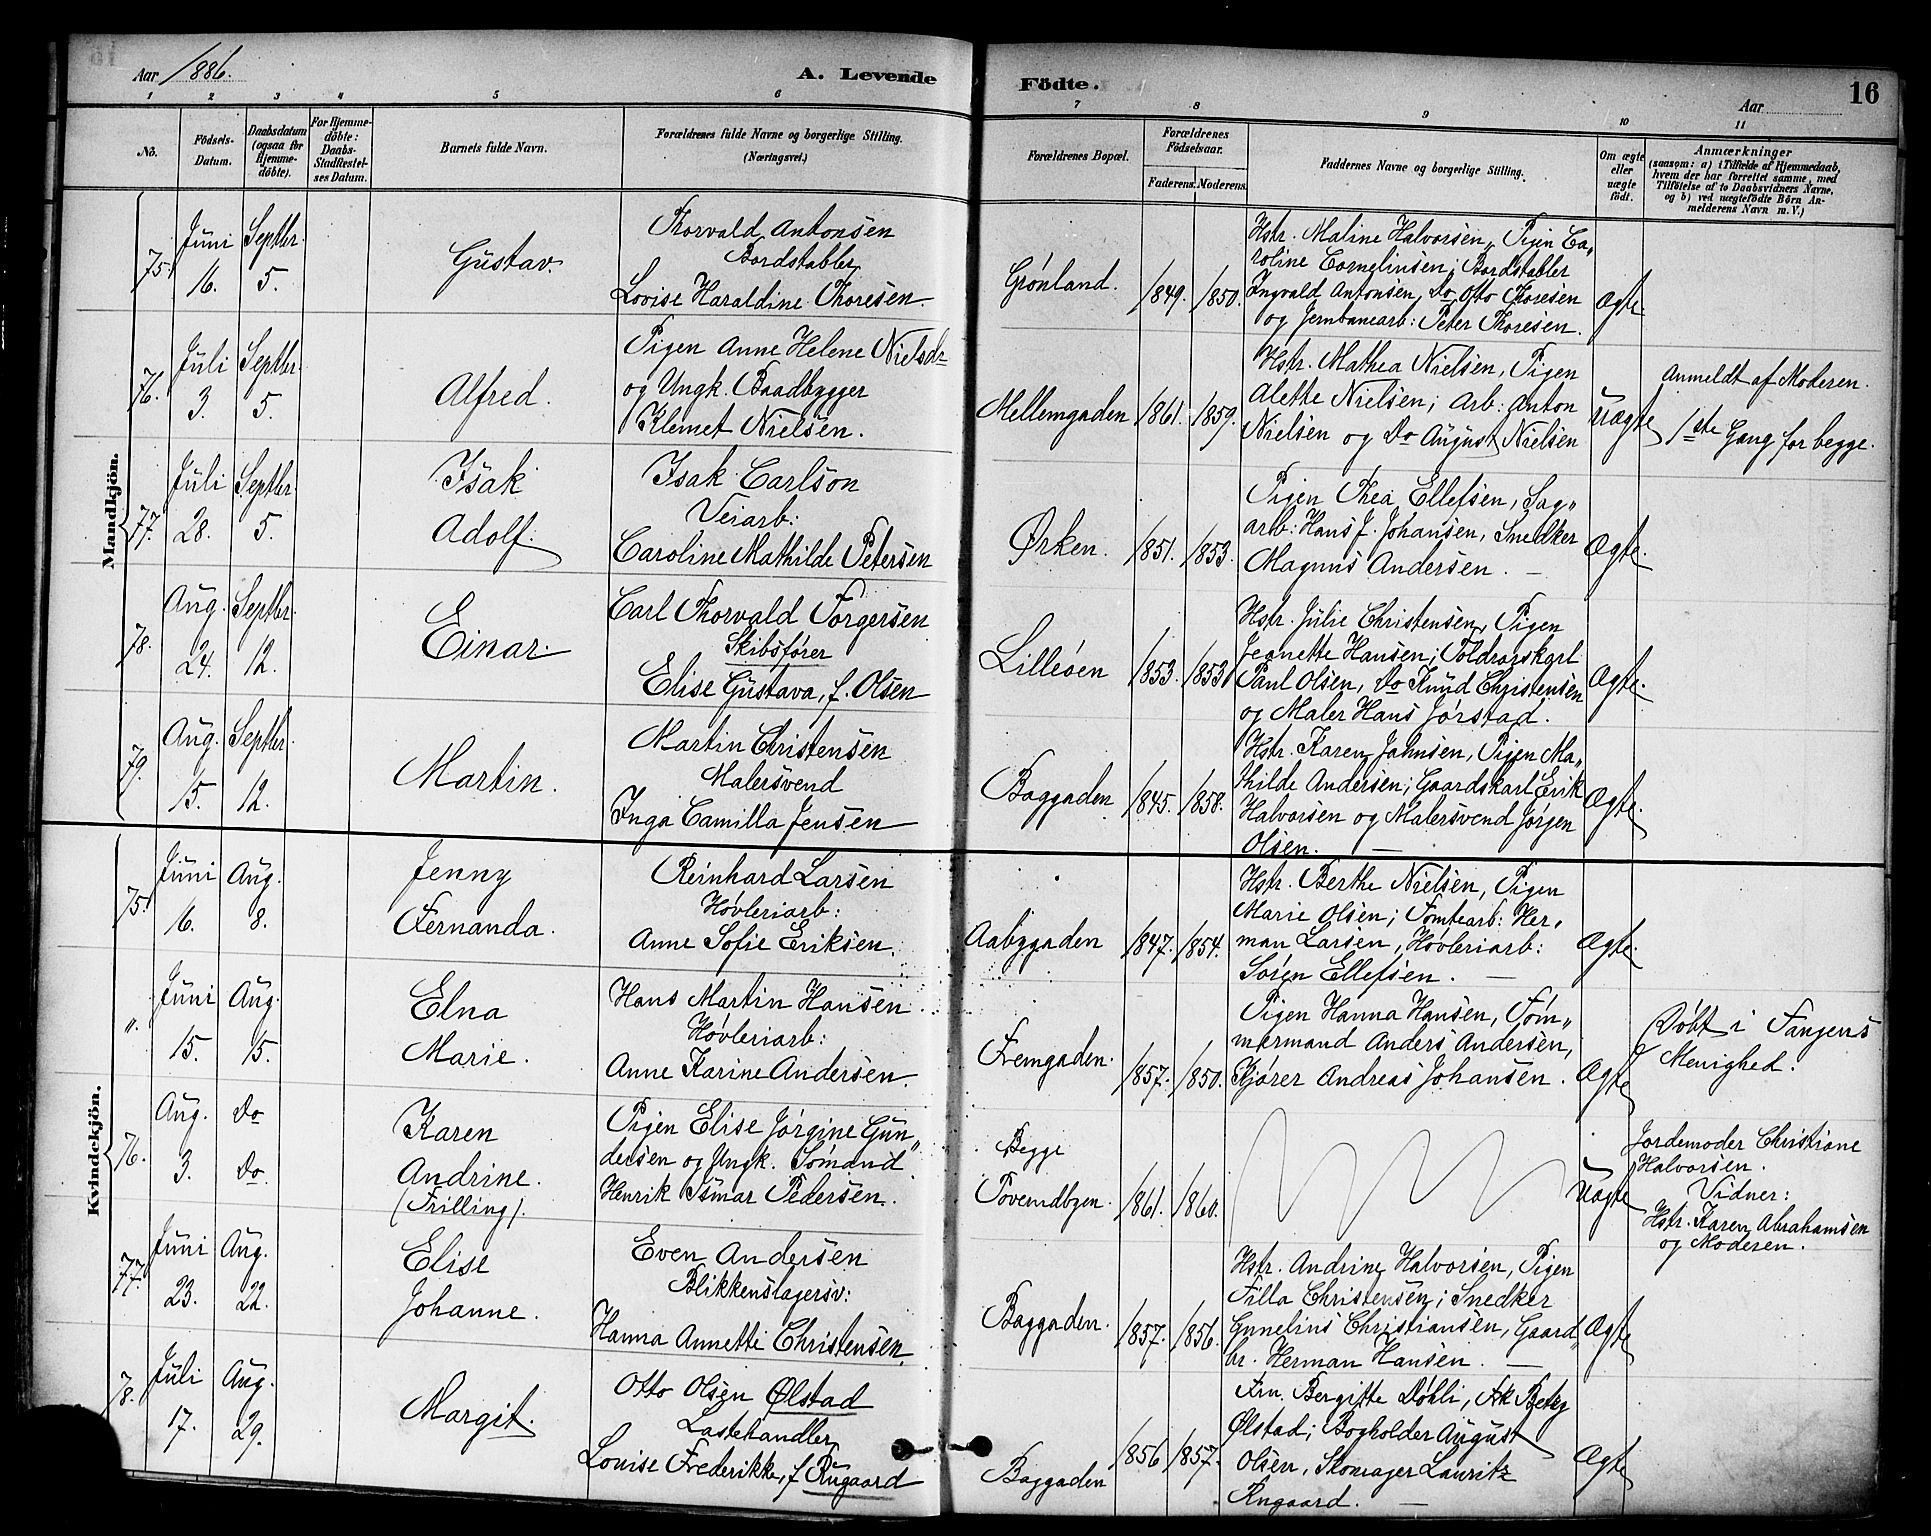 Aar 1886.
A. Levende
Födte.
Aar
16
1 2 3 4 5 6 7 8 9 10 11
No.
Födsels-Datum.
Daabsdatum (ogsaa for Hjemmedöbte).
For Hjemmedöbte: Daabs-Stadfæstelses Datum.
Barnets fulde Navn.
Forældrenes fulde Navne og borgerlige Stilling. (Næringsvei.)
Forældrenes Bopæl.
Forældrenes Födselsaar.
Faderens. Moderens.
Faddernes Navne og borgerlige Stilling.
Om ægte eller uægte födt.
Anmærkninger
(saasom: a) i Tilfælde af Hjemmedaab, hvem der har forrettet samme, med Tilföielse af to Daabsvidners Navne, og b) ved uægtefödte Börn Anmelderens Navn m. V.)
Mandkjön.
75.
Juni 16.
Septbr. 5.
Gustav.
Thorvald Antonsen
Bordstabler
Lovise Haraldine Thoresen
Grønland.
1849. 1850.
Hstr. Maline Halvorsen, Pigen Ca„
roline Cornelinsen; Bordstabler
Ingvald Antonsen, Do Otto Thoresen
og Jernbanearb: Peter Thoresen.
Ægte
76.
Juli 3.
Septbr. 5.
Alfred.
Pigen Anne Helene Nielsdr
og Ungk. Baadbygger
Klemet Nielsen.
Mellemgaden
1861. 1859.
Hstr. Mathea Nielsen, Pigen
Alette Nielsen; Arb: Anton
Nielsen og Do August Nielsen
Uægte
Anmeldt af Moderen.
1ste Gang for begge.
77.
Juli 28.
Septbr. 5.
Isak
Adolf.
Isak Carlson
Veiarb:
Caroline Mathilde Petersen
Ørken.
1851. 1853.
Pigen Thea Ellefsen, Sag„
arb: Hans J. Johansen, Snedker
Magnus Andersen. —
Ægte.
78.
Aug. 24.
Septbr. 12.
Einar.
Carl Thorvald Torgersen
Skibsfører
Elise Gustava, f. Olsen
Lilleøen
1853. 1853
Hstr. Julie Christensen, Pigen
Jeanette Hansen; Toldropskarl
Paul Olsen, Do Knud Christensen
og Maler Hans Jørstad.
Ægte.
79.
Aug. 15.
Septbr. 12.
Martin.
Martin Christensen
Malersvend
Inga Camilla Jensen
Baggaden
1845. 1858.
Hstr. Karen Johnsen, Pigen Ma„
thilde Andersen; Gaardskarl Erik
Halvorsen og Malersvend Jørgen
Olsen. —
Ægte.
Kvindekjön.
75.
Juni 16.
Aug. 8.
Jenny
Fernanda.
Reinhard Larsen
Høvleriarb:
Anne Sofie Eriksen.
Aabygaden
1847. 1854.
Hstr. Berthe Nielsen, Pigen
Marie Olsen; Tomtearb: Her„
man Larsen, Høvleriarb:
Søren Ellefsen. —
Ægte.
„.
Juni 15.
Aug. 15.
Elna
Marie.
Hans Martin Hansen
Høvleriarb:
Anne Karine Andersen.
Fremgaden.
1857. 1850.
Pigen Hanna Hansen, Tøm„
mermand Anders Andersen,
Kjører Andreas Johansen.
Ægte
Døbt i Tangens
Menighed.
76.
Aug. 3.
Do Do
Karen
Andrine.
(Trilling).
Pigen Elise Jørgine Gun„
dersen og Ungk. Sømand
Henrik Ismar Pedersen.
Begge
1861. 1860.
Uægte
Jordemoder Christiane
Halvorsen.
Vidner:
Hstr. Karen Abrahamsen
og Moderen.
77.
Juni 23.
Aug. 22.
Elise
Johanne.
Even Andersen
Blikkenslagersv:
Hanna Annette Christensen.
Baggaden.
1857. 1856.
Hstr. Andrine Halvorsen, Pigen
Tilla Christensen; Snedker
Gunelius Christiansen, Gaard„
br. Herman Hansen. —
Ægte
78.
Juli 17.
Aug. 29.
Margit.
Otto Olsen Ølstad
Lastehandler
Louise Frederikke, f Rugaard
Baggaden
1856 1857.
Fru. Bergitte Døhli, Frk Betzy
Ølstad; Bogholder August
Olsen, Skomager Lauritz
Rugaard. —
Ægte